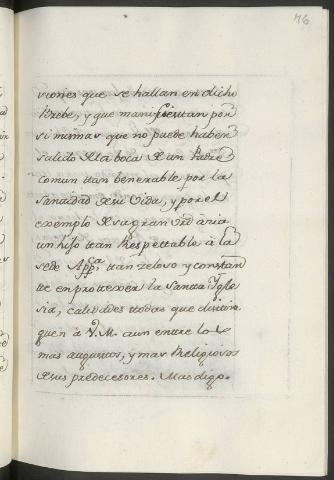 76
siones que se hallan en dicho
Brebe, y que manifiestan por
si mismas que no puede haber
salido de la boca de un Padre
comun tan benerable por la
santidad de su Vida, y por el
exemplo de su gran
un hijo tan Respettable à la
sede App.ca, tan zeloso y constan
te en protexer la Santta Ygle
sia, calidades todas que distin
guen à V. M. aun entre los
mas augustos, y mas Religiosos
de sus predecesores. Mas digo.